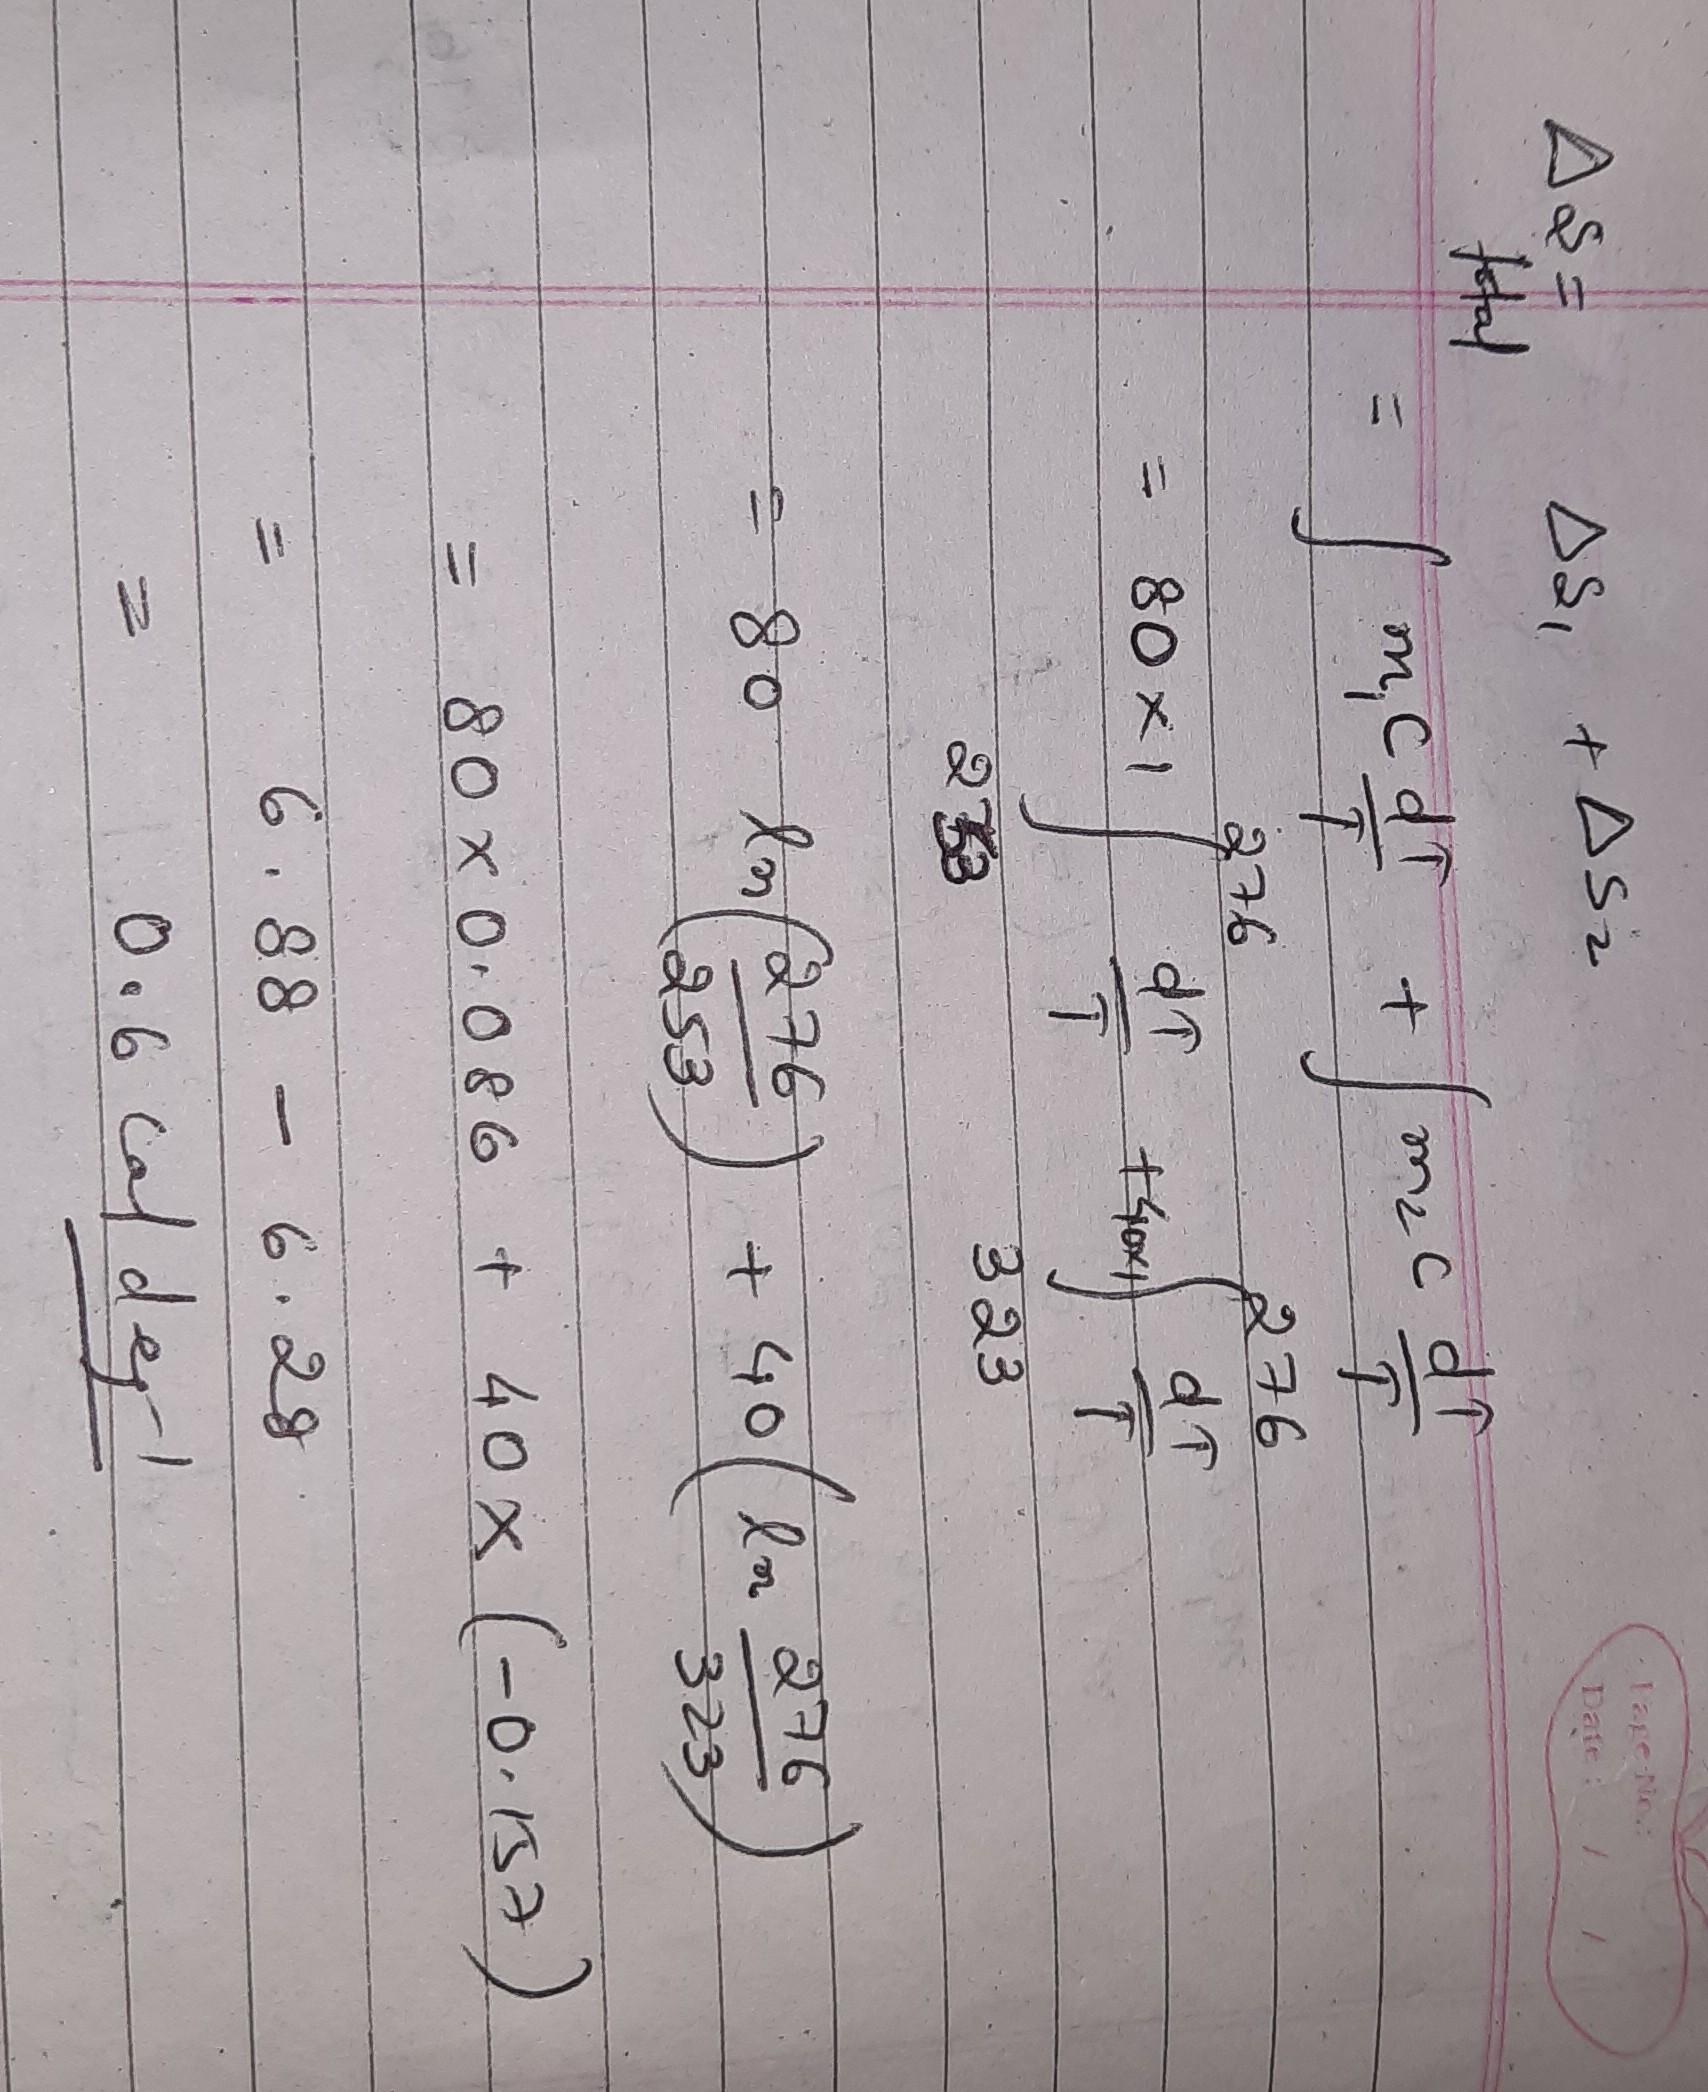 Page No.:
Date: / /
ΔS total = ΔS₁ + ΔS₂
= ∫ m₁C dT/T + ∫ m₂C dT/T
= 80×1 ∫₂₅₃²⁷⁶ dT/T + 40×1 ∫₃₂₃²⁷⁶ dT/T
= 80 ln(276/253) + 40(ln 276/323)
= 80×0.086 + 40×(-0.157)
= 6.88 - 6.28
= 0.6 cal deg⁻¹